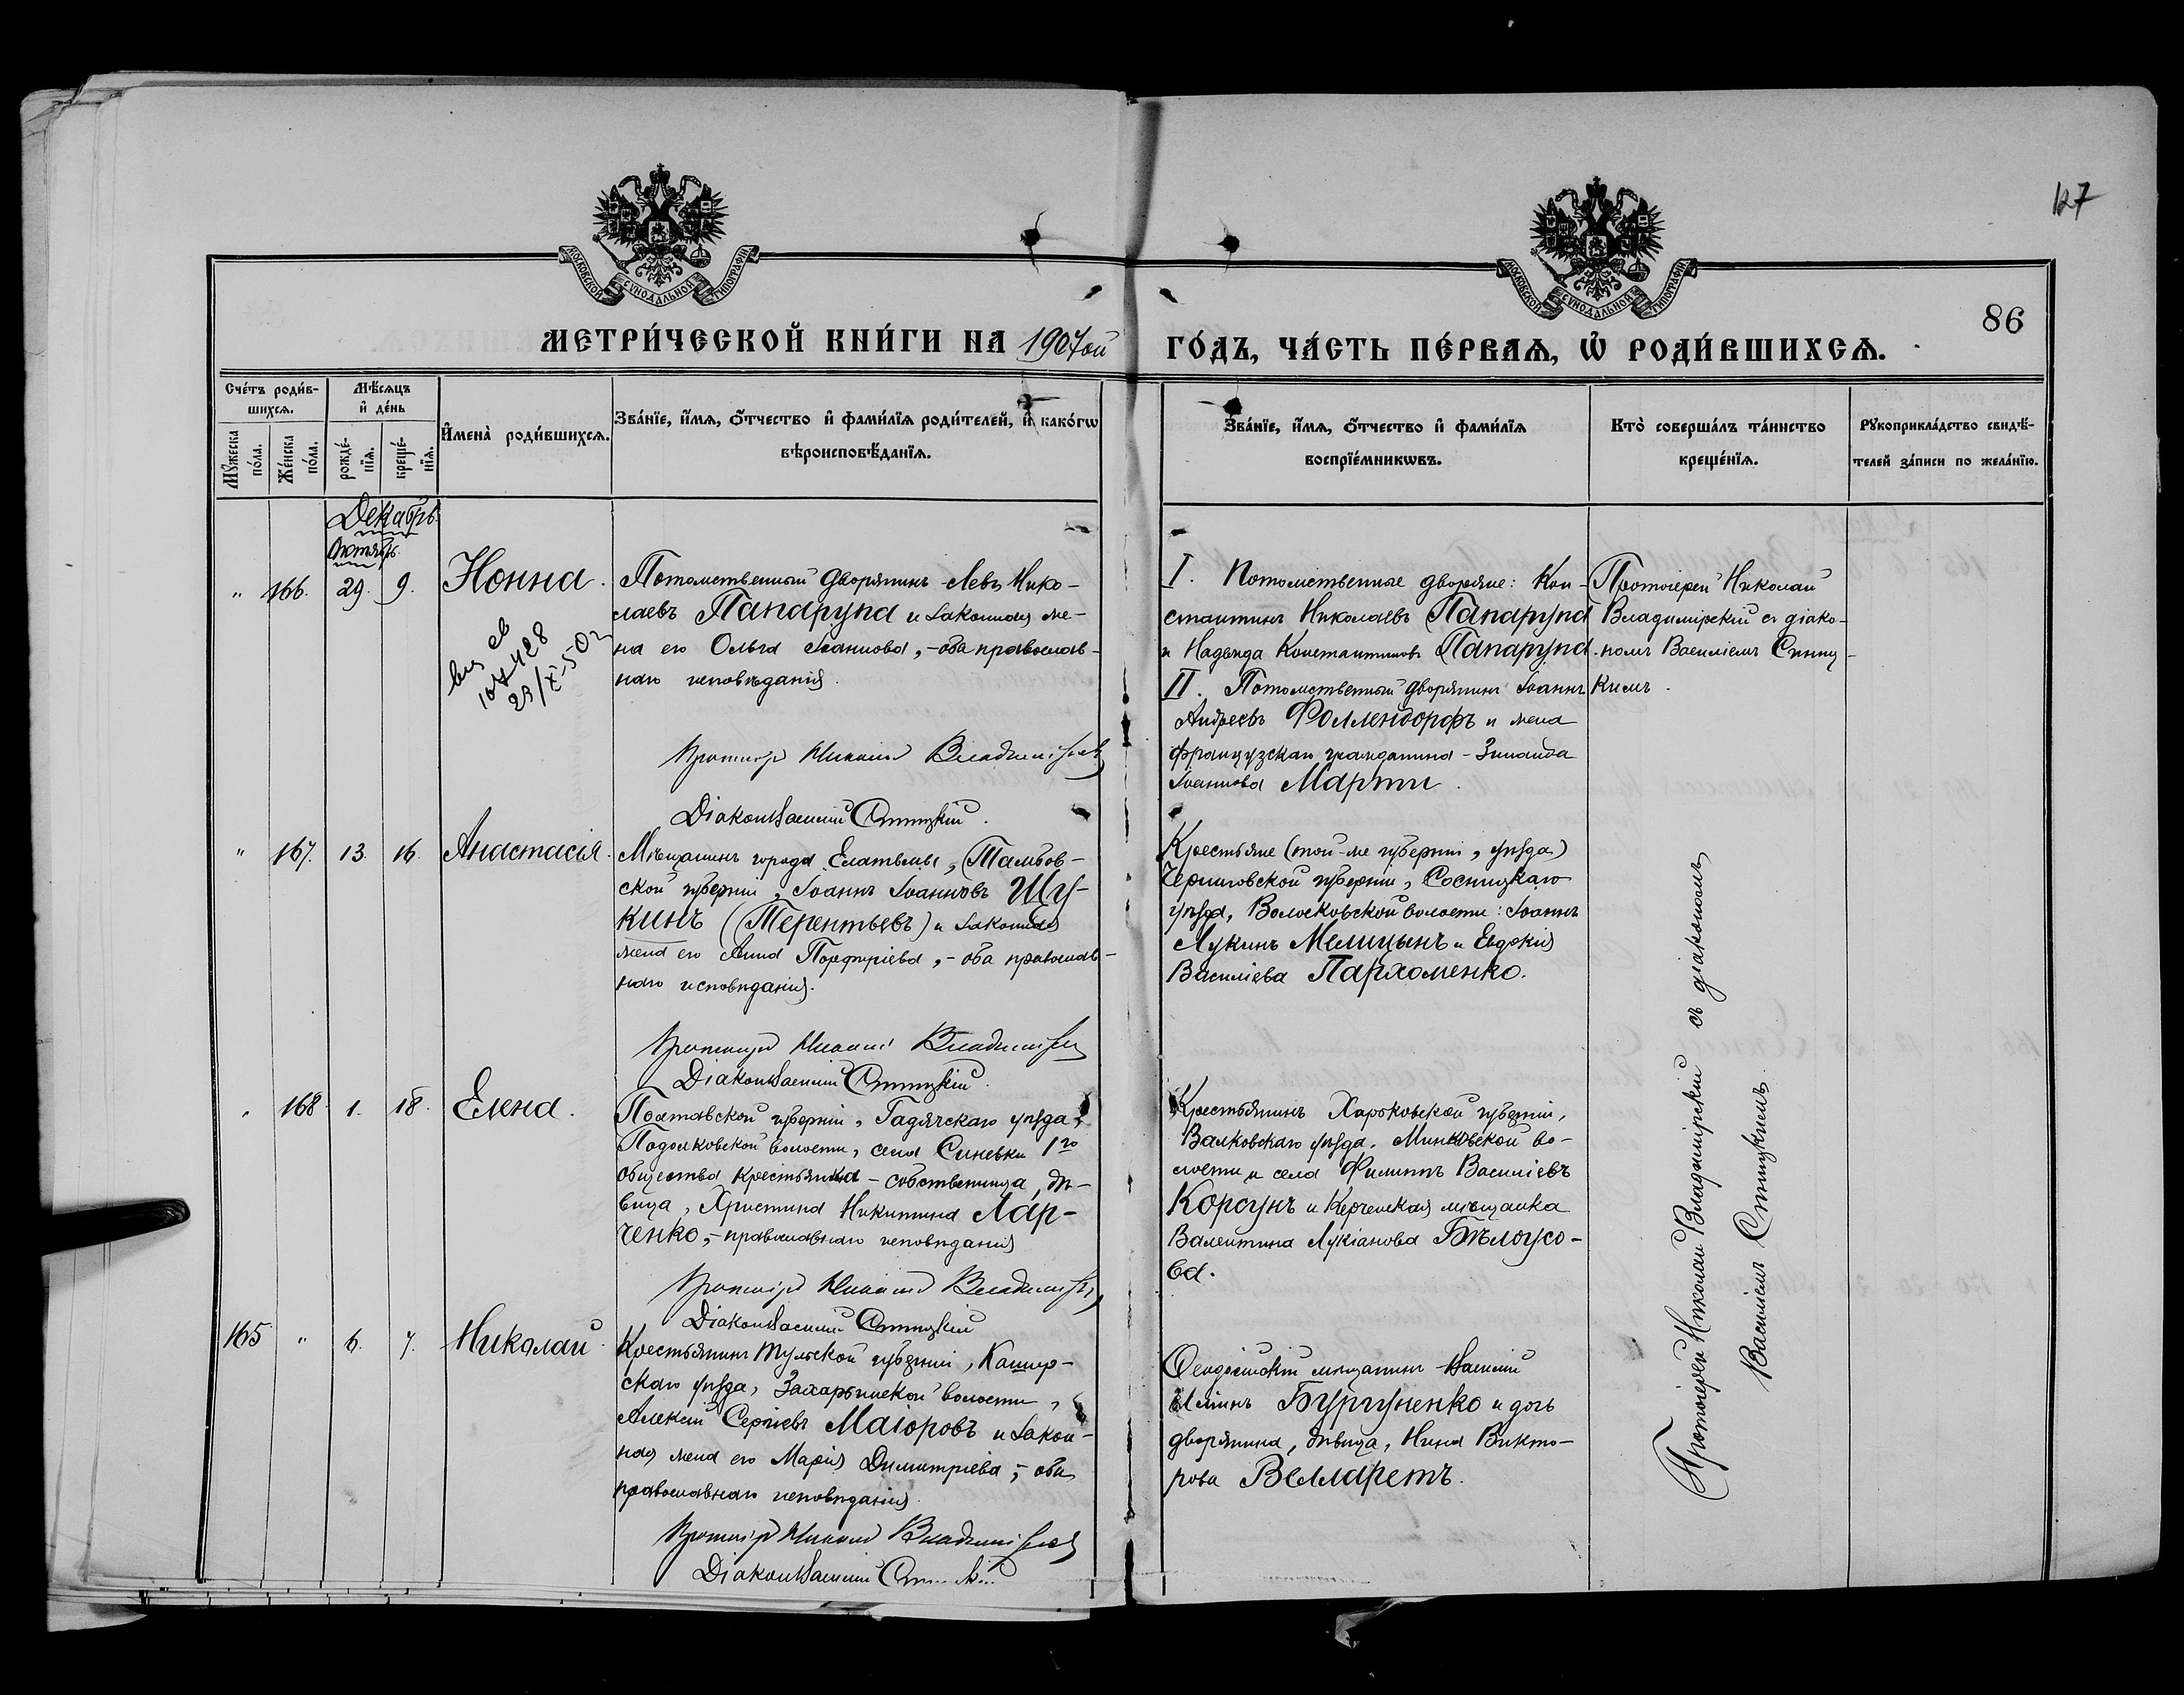 127
МОСКОВСКОЙ СѴНОДАЛЬНОЙ ТИПОГРАФІИ
МОСКОВСКОЙ СѴНОДАЛЬНОЙ ТИПОГРАФІИ
86
МЕТРИ́ЧЕСКОЙ КНИ́ГИ НА 1907ой ГО́ДЪ, ЧА́СТЬ ПЕ́РВАѦ, Ѡ҆ РОДИ́ВШИХСѦ.
Сче́тъ роди́в-
шихсѧ.
Мѣ́сѧцъ
и҆ де́нь
Мꙋ́жеска
по́ла.
Же́нска
по́ла.
рожде́-
нїѧ.
креще́-
нїѧ.
И҆мена̀ роди́вшихсѧ.
Зва́нїе, и҆́мѧ, ѻ҆́тчество и҆ фами́лїѧ роди́телей, и҆ како́гѡ
вѣроисповѣ́данїѧ.
Зва́нїе, и҆́мѧ, ѻ҆́тчество и҆ фами́лїѧ
воспрїе́мникѡвъ.
Кто̀ соверша́лъ та́инство
креще́нїѧ.
Рꙋкоприкла́дство свидѣ́-
телей за́писи по жела́нїю.
Декабрь
Октябрь
" 166. 29. 9. Нонна.
107428
Потомственный дворянинъ Левъ Нико-
лаевъ Папарупа и законная же-
на его Ольга Іоаннова, - оба православ-
наго исповѣданія.
Протоіерей Николай Владимірскій
Діаконъ Василій Ституцкій.
I. Потомственные дворяне: Кон-
стантинъ Николаевъ Папарупа
и Надежда Константинова Папарупа.
II. Потомственный дворянинъ Іоаннъ
Андреевъ Фоллендорфъ и жена
французскаго гражданина - Зинаида
Іоаннова Марти.
Протоіерей Николай
Владимірскій съ діако-
номъ Василіемъ
" 167. 13. 16. Анастасія.
Мѣщанинъ города Елатьмы, Тамбов-
ской губерніи, Іоаннъ Іоанновъ Шу-
кинъ (Терентьевъ) и законная
жена его Анна Порфиріева, - оба православ-
наго исповѣданія.
Протоіерей Николай Владимірскій
Діаконъ Василій
Крестьяне (той-же губерніи, уѣзда)
Черниговской губерніи, Сосницкаго
уѣзда, Волосковской волости: Іоаннъ
Лукинъ Мелицынъ и Евдокія
Василіева Пархоменко.
" 168. 1. 18. Елена.
Полтавской губерніи, Гадячскаго уѣзда,
Подолковской волости, села Синевки 1го
общества крестьянка - собственница, дѣ-
вица, Христина Никитина Лар-
ченко, - православнаго исповѣданія
Протоіерей Николай Владимірскій
Діаконъ Василій
Крестьянинъ Харьковской губерніи,
Валковскаго уѣзда, Миньковской во-
лости и села Филиппъ Василіевъ
Корсунъ и Керченская мѣщанка
Валентина Лукіанова Бѣлоусо-
ва.
165 " 6. 7. Николай.
Крестьянинъ Тульской губерніи, Кашир-
скаго уѣзда, Захарьинской волости,
Алексій Сергіевъ Маіоровъ и закон-
ная жена его Марія Димитріева, - оба
православнаго исповѣданія.
Протоіерей Николай Владимірскій
Діаконъ Василій
Ѳеодосійскій мѣщанинъ Василій
Бургуненко и дочь
дворянина, дѣвица, Нина Викто-
рова Велларетъ.
Протоіерей Николай Владимірскій съ діакономъ
Василіемъ